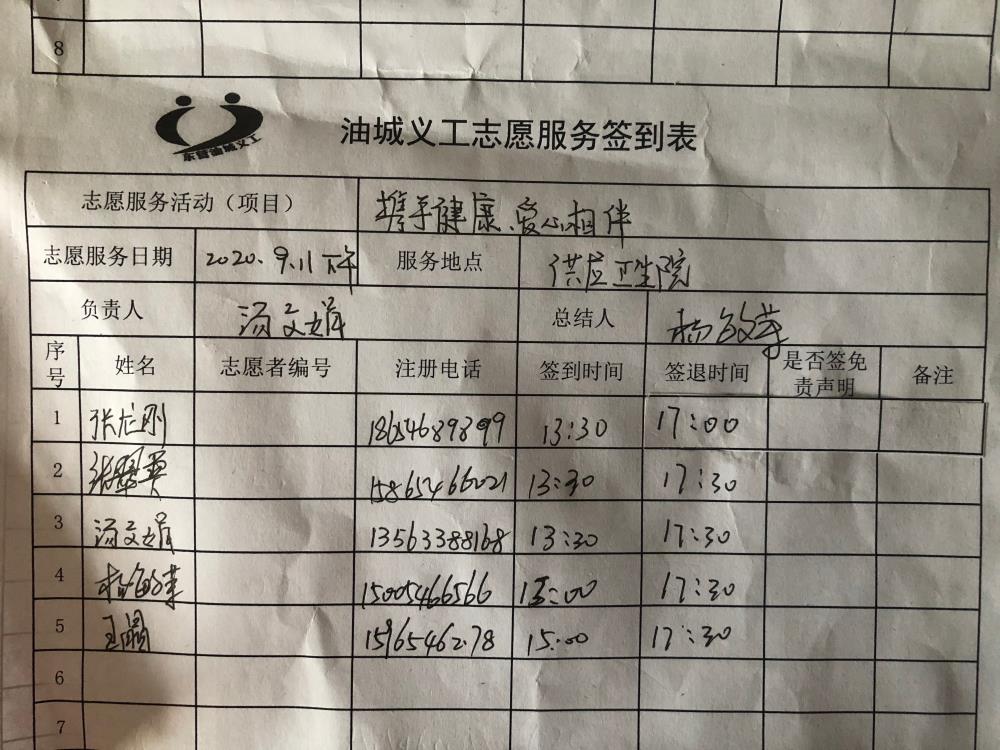 8
东营油城义工
油城义工志愿服务签到表
志愿服务活动（项目） 携手健康、爱心相伴
志愿服务日期 2020.9.11下午 服务地点 供应卫生院
负责人 汤文娟 总结人 杨敏
序号 姓名 志愿者编号 注册电话 签到时间 签退时间 是否签免责声明 备注
1 张龙刚 18654689899 13:30 17:00
2 15865466021 13:30 17:30
3 汤文娟 13563388168 13:30 17:30
4 杨敏 15005466566 15:00 17:30
5 王 15:00 17:30
6
7